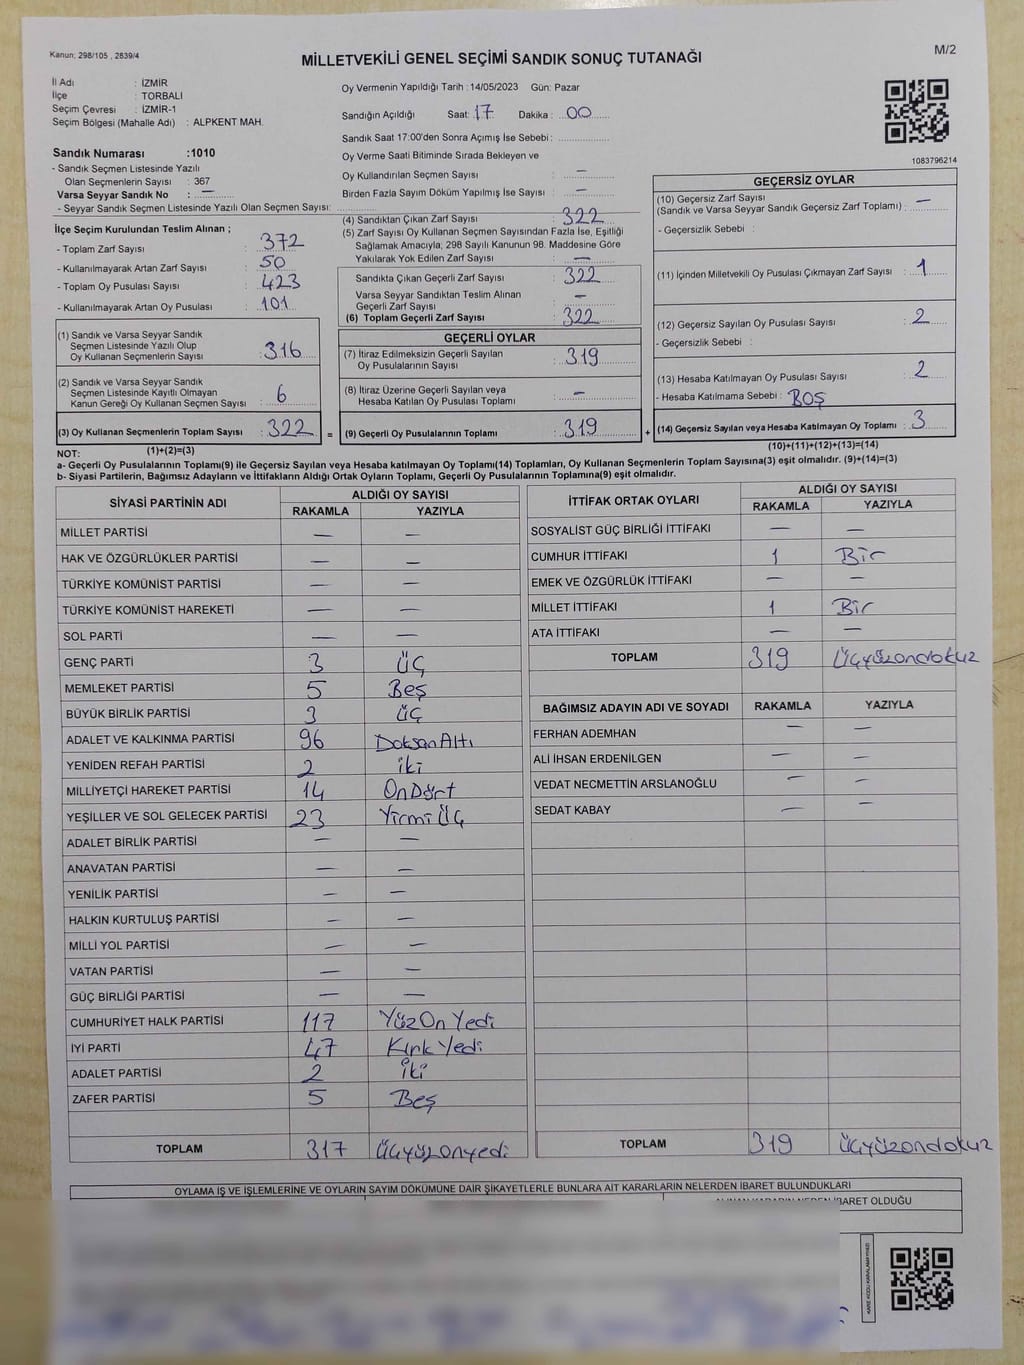 Kanun: 298/105 , 2839/4
MİLLETVEKİLİ GENEL SEÇİMİ SANDIK SONUÇ TUTANAĞI
M/2
İl Adı : İZMİR
İlçe : TORBALI
Seçim Çevresi : İZMİR-1
Seçim Bölgesi (Mahalle Adı) : ALPKENT MAH.
Oy Vermenin Yapıldığı Tarih : 14/05/2023 Gün: Pazar
Sandığın Açıldığı Saat: 17 Dakika : 00
Sandık Saat 17:00'den Sonra Açımış İse Sebebi:
Oy Verme Saati Bitiminde Sırada Bekleyen ve
Oy Kullandırılan Seçmen Sayısı : —
Birden Fazla Sayım Döküm Yapılmış İse Sayısı : —
1083796214
Sandık Numarası :1010
- Sandık Seçmen Listesinde Yazılı
Olan Seçmenlerin Sayısı : 367
Varsa Seyyar Sandık No : —
- Seyyar Sandık Seçmen Listesinde Yazılı Olan Seçmen Sayısı:
İlçe Seçim Kurulundan Teslim Alınan ;
- Toplam Zarf Sayısı : 372
- Kullanılmayarak Artan Zarf Sayısı : 50
- Toplam Oy Pusulası Sayısı : 423
- Kullanılmayarak Artan Oy Pusulası : 101
(1) Sandık ve Varsa Seyyar Sandık
Seçmen Listesinde Yazılı Olup
Oy Kullanan Seçmenlerin Sayısı : 316
(2) Sandık ve Varsa Seyyar Sandık
Seçmen Listesinde Kayıtlı Olmayan
Kanun Gereği Oy Kullanan Seçmen Sayısı : 6
(3) Oy Kullanan Seçmenlerin Toplam Sayısı : 322 =
(4) Sandıktan Çıkan Zarf Sayısı : 322
(5) Zarf Sayısı Oy Kullanan Seçmen Sayısından Fazla İse, Eşitliği
Sağlamak Amacıyla; 298 Sayılı Kanunun 98. Maddesine Göre
Yakılarak Yok Edilen Zarf Sayısı : —
Sandıkta Çıkan Geçerli Zarf Sayısı : 322
Varsa Seyyar Sandıktan Teslim Alınan
Geçerli Zarf Sayısı : —
(6) Toplam Geçerli Zarf Sayısı : 322
GEÇERLİ OYLAR
(7) İtiraz Edilmeksizin Geçerli Sayılan
Oy Pusulalarının Sayısı : 319
(8) İtiraz Üzerine Geçerli Sayılan veya
Hesaba Katılan Oy Pusulası Toplamı : —
(9) Geçerli Oy Pusulalarının Toplamı : 319 +
GEÇERSİZ OYLAR
(10) Geçersiz Zarf Sayısı
(Sandık ve Varsa Seyyar Sandık Geçersiz Zarf Toplamı) : —
- Geçersizlik Sebebi :
(11) İçinden Milletvekili Oy Pusulası Çıkmayan Zarf Sayısı : 1
(12) Geçersiz Sayılan Oy Pusulası Sayısı : 2
- Geçersizlik Sebebi :
(13) Hesaba Katılmayan Oy Pusulası Sayısı : 2
- Hesaba Katılmama Sebebi : BOŞ
(14) Geçersiz Sayılan veya Hesaba Katılmayan Oy Toplamı : 3
NOT: (1)+(2)=(3) (10)+(11)+(12)+(13)=(14)
a- Geçerli Oy Pusulalarının Toplamı(9) ile Geçersiz Sayılan veya Hesaba katılmayan Oy Toplamı(14) Toplamları, Oy Kullanan Seçmenlerin Toplam Sayısına(3) eşit olmalıdır. (9)+(14)=(3)
b- Siyasi Partilerin, Bağımsız Adayların ve İttifakların Aldığı Ortak Oyların Toplamı, Geçerli Oy Pusulalarının Toplamına(9) eşit olmalıdır.
SİYASİ PARTİNİN ADI ALDIĞI OY SAYISI
RAKAMLA YAZIYLA
MİLLET PARTİSİ — —
HAK VE ÖZGÜRLÜKLER PARTİSİ — —
TÜRKİYE KOMÜNİST PARTİSİ — —
TÜRKİYE KOMÜNİST HAREKETİ — —
SOL PARTİ — —
GENÇ PARTİ 3 ÜÇ
MEMLEKET PARTİSİ 5 Beş
BÜYÜK BİRLİK PARTİSİ 3 ÜÇ
ADALET VE KALKINMA PARTİSİ 96 Doksan Altı
YENİDEN REFAH PARTİSİ 2 İki
MİLLİYETÇİ HAREKET PARTİSİ 14 On Dört
YEŞİLLER VE SOL GELECEK PARTİSİ 23 Yirmi Üç
ADALET BİRLİK PARTİSİ — —
ANAVATAN PARTİSİ — —
YENİLİK PARTİSİ — —
HALKIN KURTULUŞ PARTİSİ — —
MİLLİ YOL PARTİSİ — —
VATAN PARTİSİ — —
GÜÇ BİRLİĞİ PARTİSİ — —
CUMHURİYET HALK PARTİSİ 117 Yüz On Yedi
İYİ PARTİ 47 Kırk Yedi
ADALET PARTİSİ 2 İki
ZAFER PARTİSİ 5 Beş
TOPLAM 317 Üçyüzonyedi
İTTİFAK ORTAK OYLARI ALDIĞI OY SAYISI
RAKAMLA YAZIYLA
SOSYALİST GÜÇ BİRLİĞİ İTTİFAKI — —
CUMHUR İTTİFAKI 1 Bir
EMEK VE ÖZGÜRLÜK İTTİFAKI — —
MİLLET İTTİFAKI 1 Bir
ATA İTTİFAKI — —
TOPLAM 319 Üçyüzondokuz
BAĞIMSIZ ADAYIN ADI VE SOYADI RAKAMLA YAZIYLA
FERHAN ADEMHAN — —
ALİ İHSAN ERDENİLGEN — —
VEDAT NECMETTİN ARSLANOĞLU — —
SEDAT KABAY — —
TOPLAM 319 Üçyüzondokuz
OYLAMA İŞ VE İŞLEMLERİNE VE OYLARIN SAYIM DÖKÜMÜNE DAİR ŞİKAYETLERLE BUNLARA AİT KARARLARIN NELERDEN İBARET BULUNDUKLARI
İBARET OLDUĞU
KARE KODU KARALAMAYINIZ!